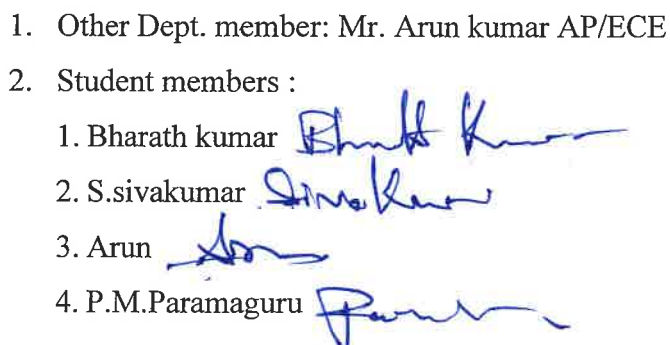 1. Other Dept. member: Mr. Arun kumar AP/ECE
2. Student members :
1. Bharath kumar
2. S.sivakumar SivaKumar
3. Arun
4. P.M.Paramaguru